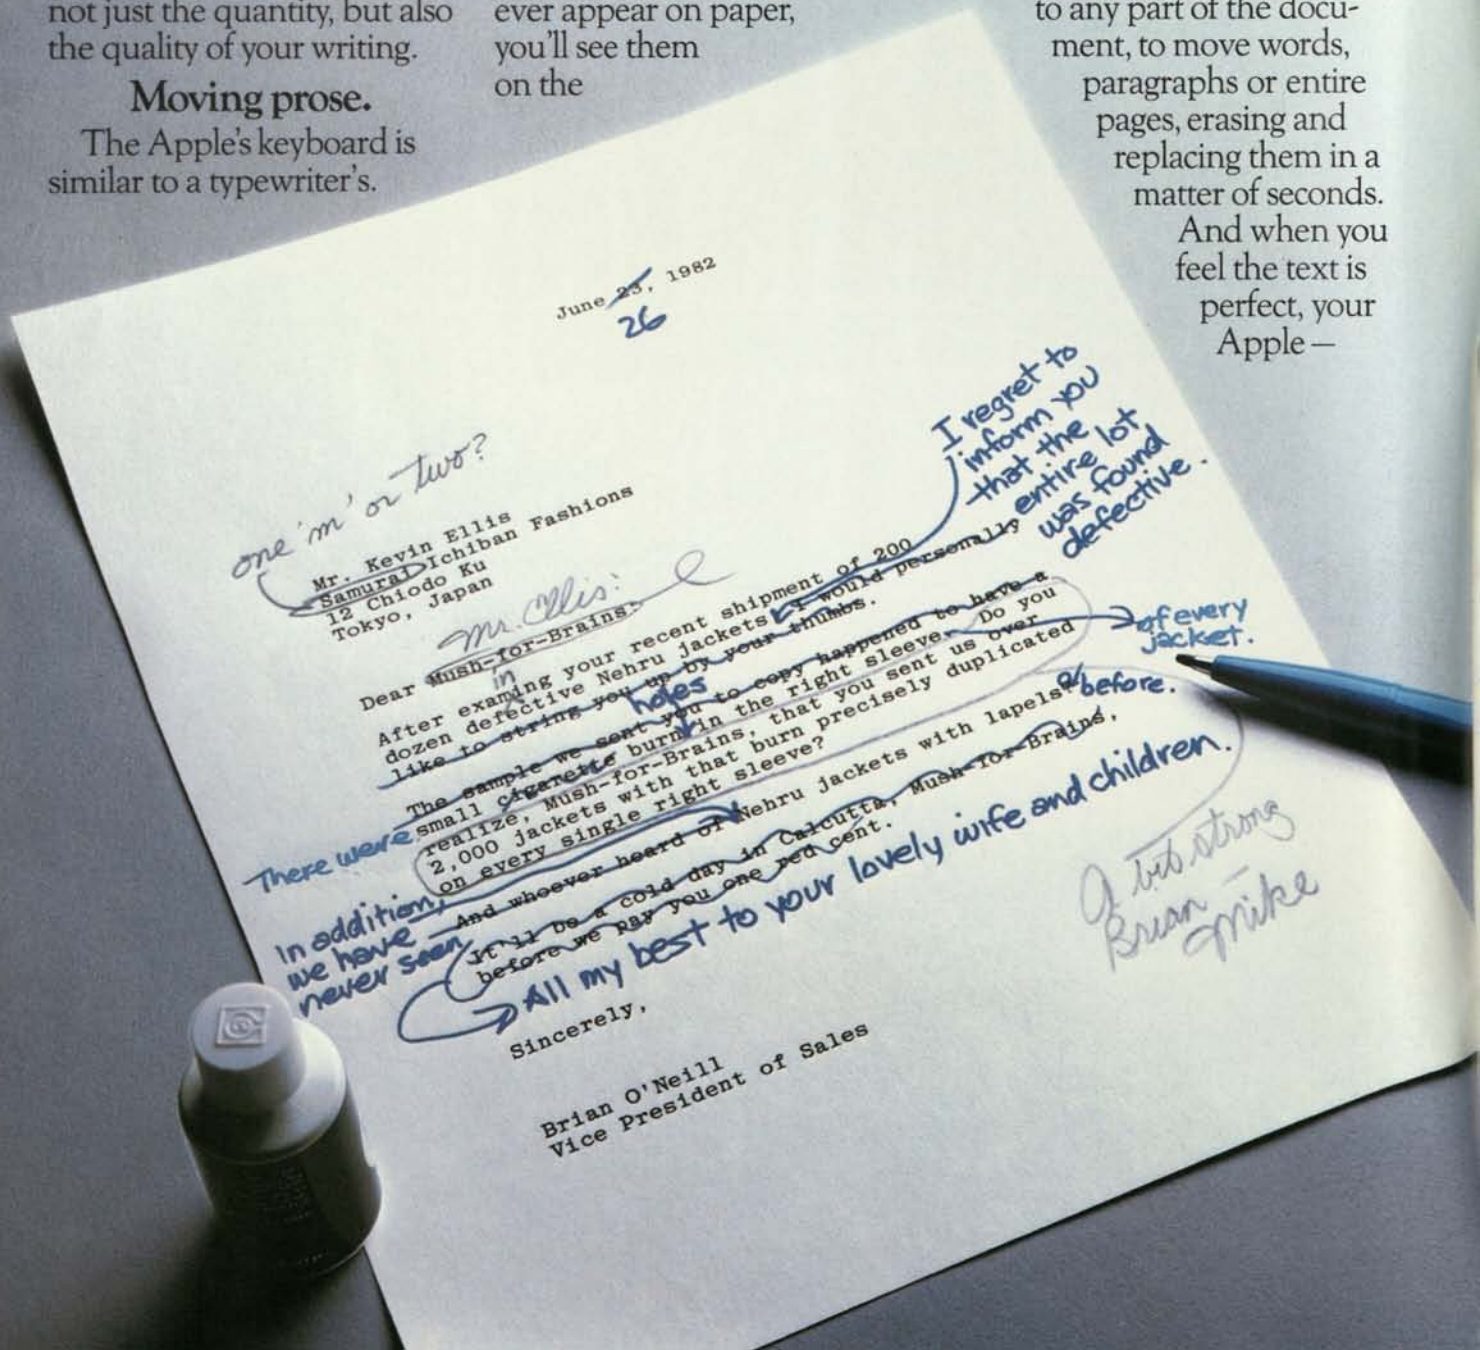 not just the quantity, but also
the quality of your writing.
Moving prose.
The Apple's keyboard is
similar to a typewriter's.
ever appear on paper,
you'll see them
on the
to any part of the docu-
ment, to move words,
paragraphs or entire
pages, erasing and
replacing them in a
matter of seconds.
And when you
feel the text is
perfect, your
Apple —
June 23, 1982
26
one 'm' or two?
Mr. Kevin Ellis
Samurai Ichiban Fashions
12 Chiodo Ku
Tokyo, Japan
Mr. Ellis:
Dear Mush-for-Brains:
in
After examing your recent shipment of 200
dozen defective Nehru jackets I would personally
like to string you up by your thumbs.
I regret to
inform you
that the
entire lot
was found
defective.
holes
The sample we sent you to copy happened to have a
small cigarette burn in the right sleeve. Do you
realize, Mush-for-Brains, that you sent us over
2,000 jackets with that burn precisely duplicated
on every single right sleeve?
of every
jacket.
There were
And whoever heard of Nehru jackets with lapels?
before.
In addition,
we have
never seen
It'll be a cold day in Calcutta, Mush-for-Brains,
before we pay you one red cent.
All my best to your lovely wife and children.
A bit strong
Brian —
Mike
Sincerely,
Brian O'Neill
Vice President of Sales